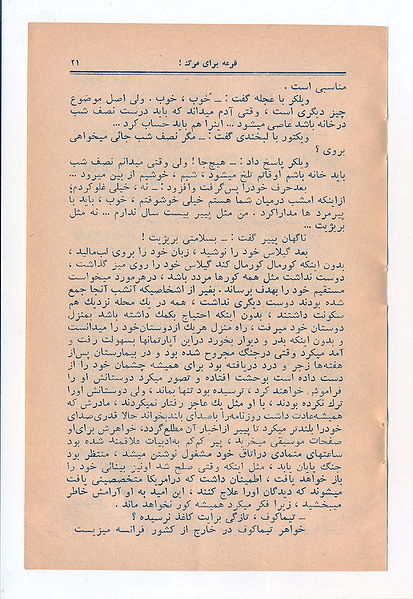 قرعه برای مرگ ! ۲۱
مناسبی است .
ویلکر با عجله گفت : ــ خوب ، خوب . ولی اصل موضوع
چیز دیگری است ، وقتی آدم میداند که باید درست نصف شب
درخانه باشد عاصی میشود ... اینرا هم باید حساب کرد ...
ویکتور با لبخندی گفت : ــ مگر نصف شب جائی میخواهی
بروی ؟
ویلکر پاسخ داد : ــ هیچ‌جا ! ولی وقتی میدانم نصف شب
باید خانه باشم اوقاتم تلخ میشود ، شبم ، خوشیم از بین میرود ...
بعد حرف خودرا پس‌گرفت وافزود : ــ نه ، خیلی غلوکردم؛
ازاینکه امشب درمیان شما هستم خیلی خوشوقتم ، خوب ، باید با
پیرمرد ها مداراکرد . من مثل پییر بیست سال ندارم ... نه مثل
بریژیت ...
ناگهان پییر گفت : ــ بسلامتی بریژیت !
بعد گیلاس خود را نوشید ، زبان خود را بروی لب‌مالید ،
بدون اینکه کورمال کورمال کند گیلاس خود را روی میز گذاشت ،
دوست نداشت مثل همه کورها مردد باشد ، درهرمورد میخواست
مستقیم خود را بهدف برساند . بغیر از اشخاصیکه آنشب آنجا جمع
شده بودند دوست دیگری نداشت ، همه در یك محله نزدیك هم
سکونت داشتند ، بدون اینکه احتیاج بکمك داشته باشد بمنزل
دوستان خود میرفت ، راه منزل هریك ازدوستان‌خود را میدانست
و بدون اینکه بدر و دیوار بخورد دراین آپارتمانها بسهولت رفت و
آمد میکرد وقتی درجنگ مجروح شده بود و در بیمارستان پس‌از
هفته‌ها زجر و درد دریافته بود برای همیشه چشمان خود را از
دست داده است بوحشت افتاده و تصور میکرد دوستانش او را
فراموش خواهند کرد ، ترسیده بود تنها بماند ، ولی دوستانش اورا
ترك نکرده بودند ، با او مثل یك عاجز رفتار نمیکردند ، مادرش که
همیشه‌عادت داشت روزنامه‌را باصدای بلندبخواند حالا قدری‌صدای
خودرا بلندتر میکرد تا پییر ازاخبار آن مطلع‌گردد، خواهرش برای‌او
صفحات موسیقی میخرید ، پییر کم‌کم به‌ادبیات علاقمند شده بود
ساعتهای متمادی دراتاق خود مشغول نوشتن میشد ، منتظر بود
جنگ پایان یابد ، مثل اینکه وقتی صلح شد اونیز بینائی خود را
باز خواهد یافت ، اطمینان داشت که درامریکا متخصصینی یافت
میشوند که دیدگان اورا علاج کنند ، این امید به او آرامش خاطر
میبخشید ، زیرا فکر میکرد همیشه کور نخواهد ماند .
ــ تیماکوف ، تازگی برایت کاغذ نرسیده ؟
خواهر تیماکوف در خارج از کشور فرانسه میزیست